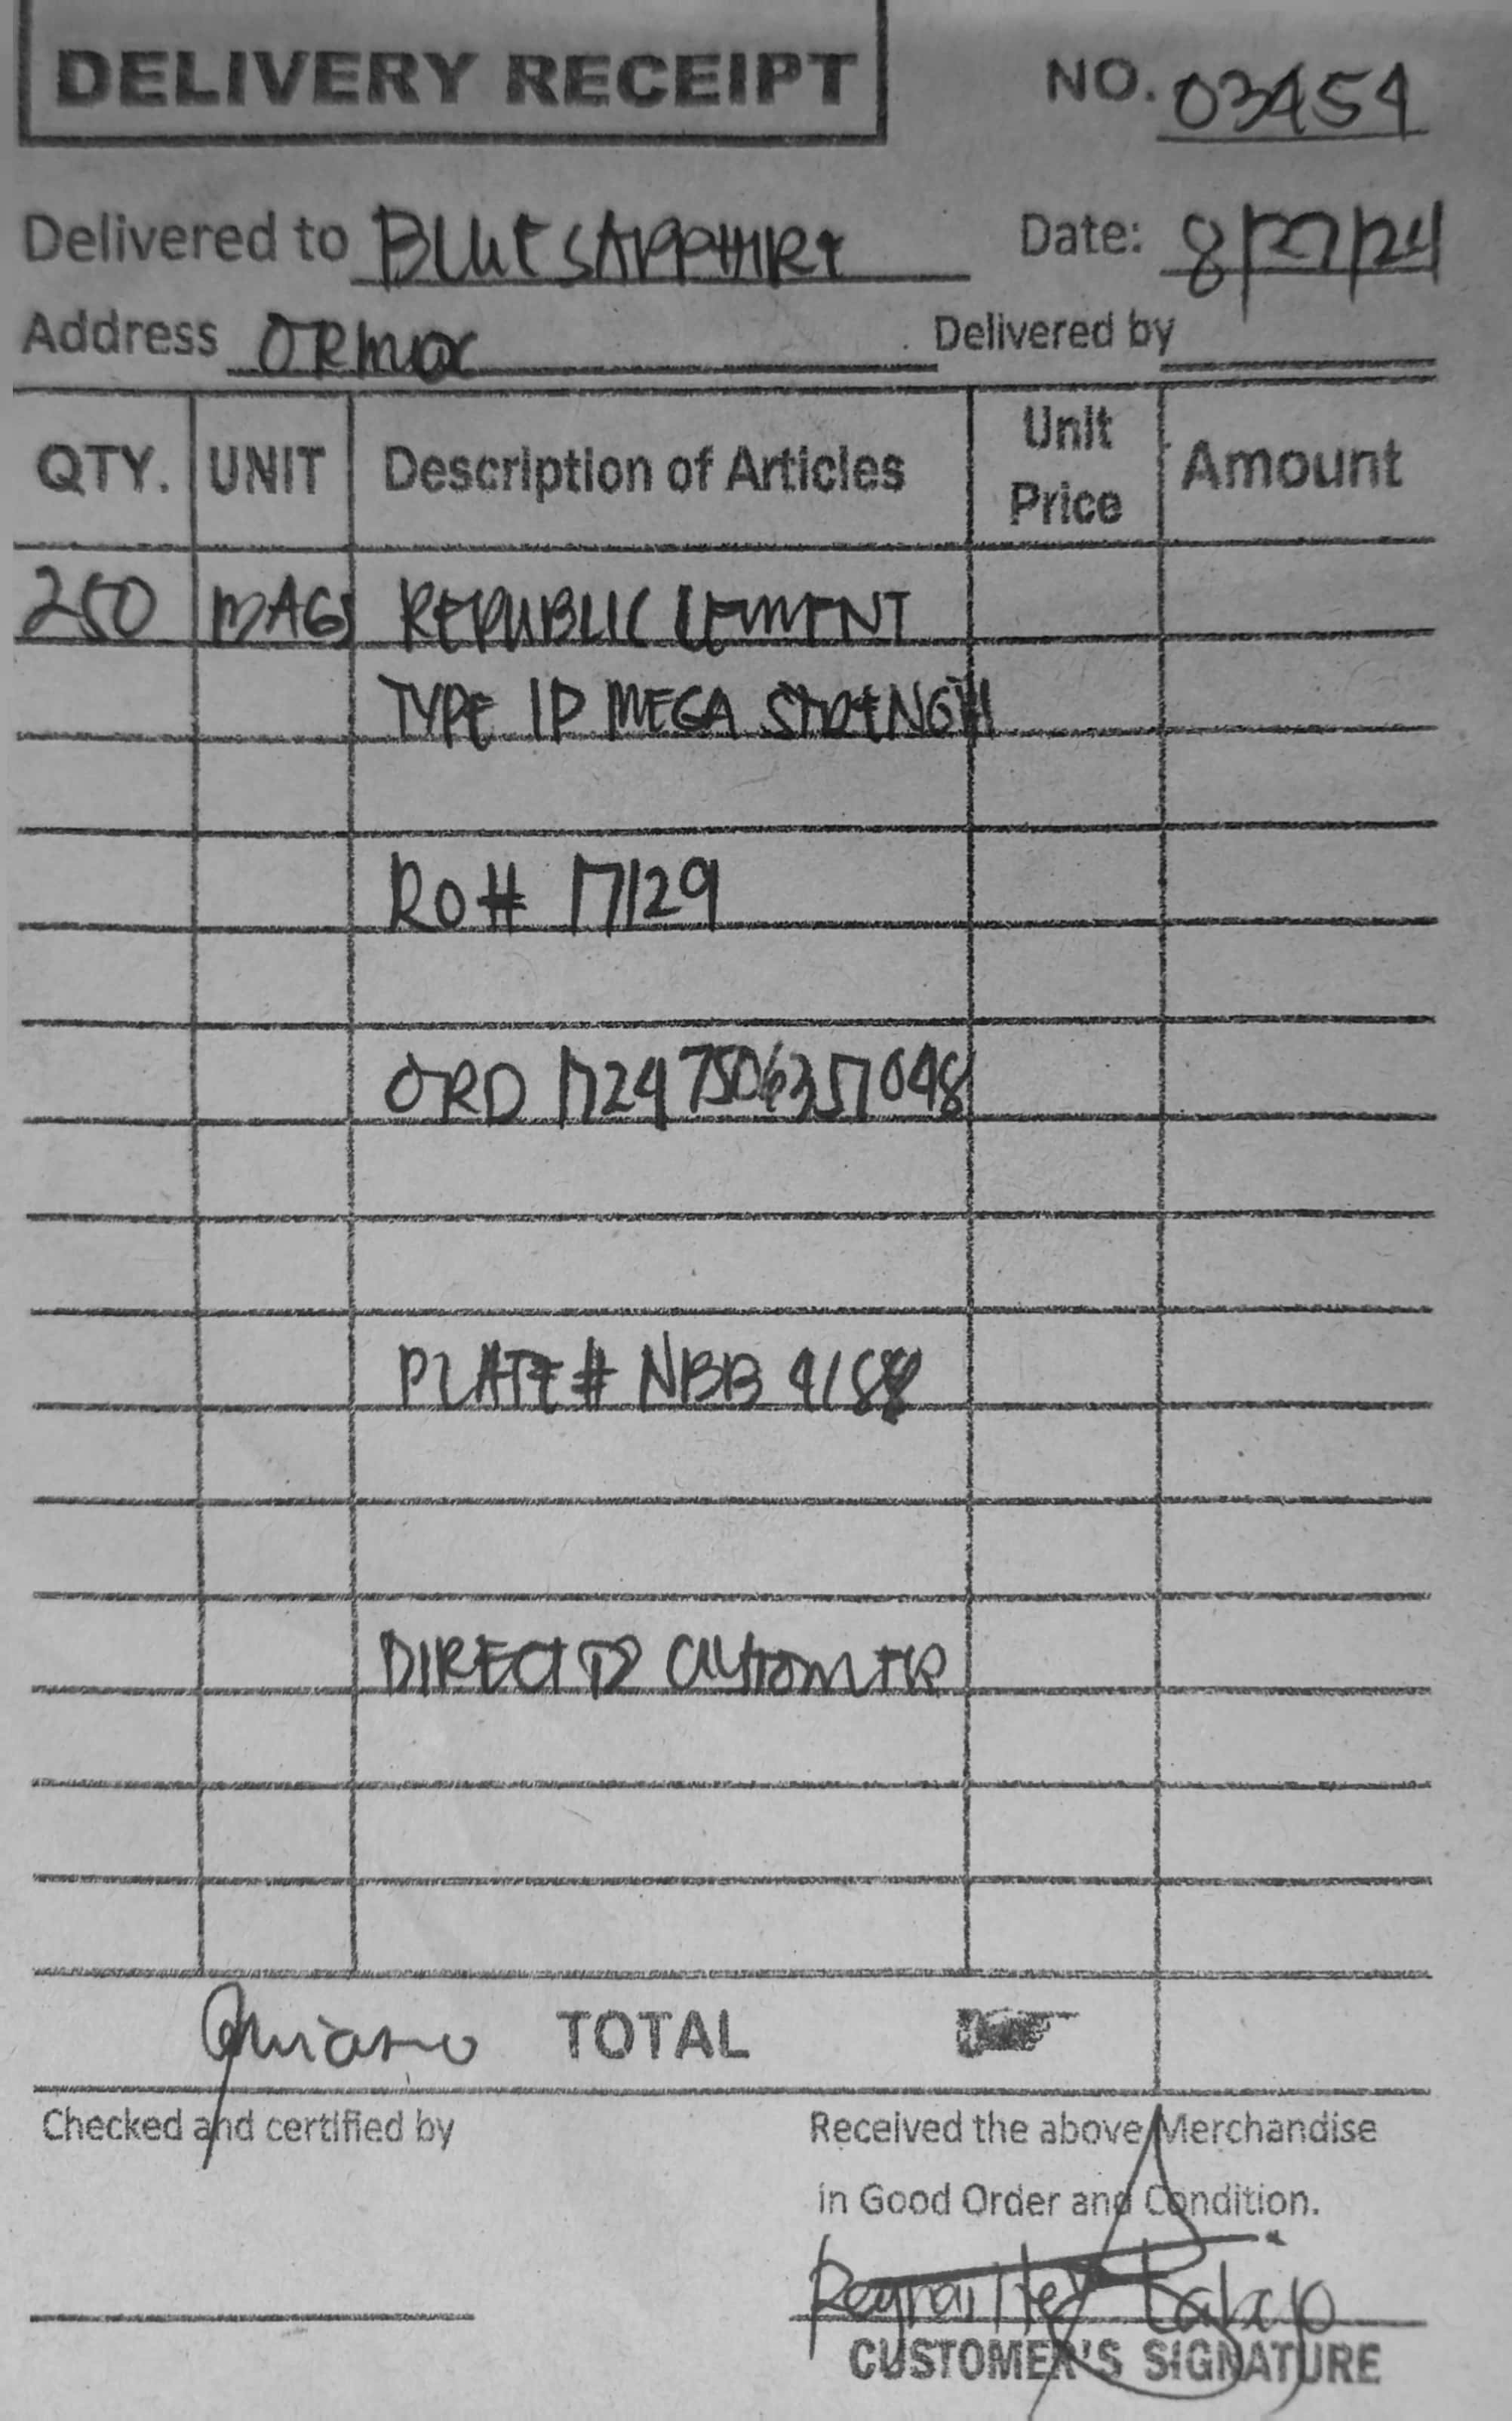 DELIVERY RECEIPT NO. 03454
Delivered to BLUE SAPPHIRE Date: 8/27/24
Address ORMOC Delivered by
QTY. UNIT Description of Articles Unit Price Amount
250 BAGS REPUBLIC CEMENT
TYPE 1P MEGA STRENGTH
RO# 17129
ORD 17247506357048
PLATE # NBB 4188
DIRECT TO CUSTOMER
TOTAL
Checked and certified by
Received the above Merchandise
in Good Order and Condition.
CUSTOMER'S SIGNATURE